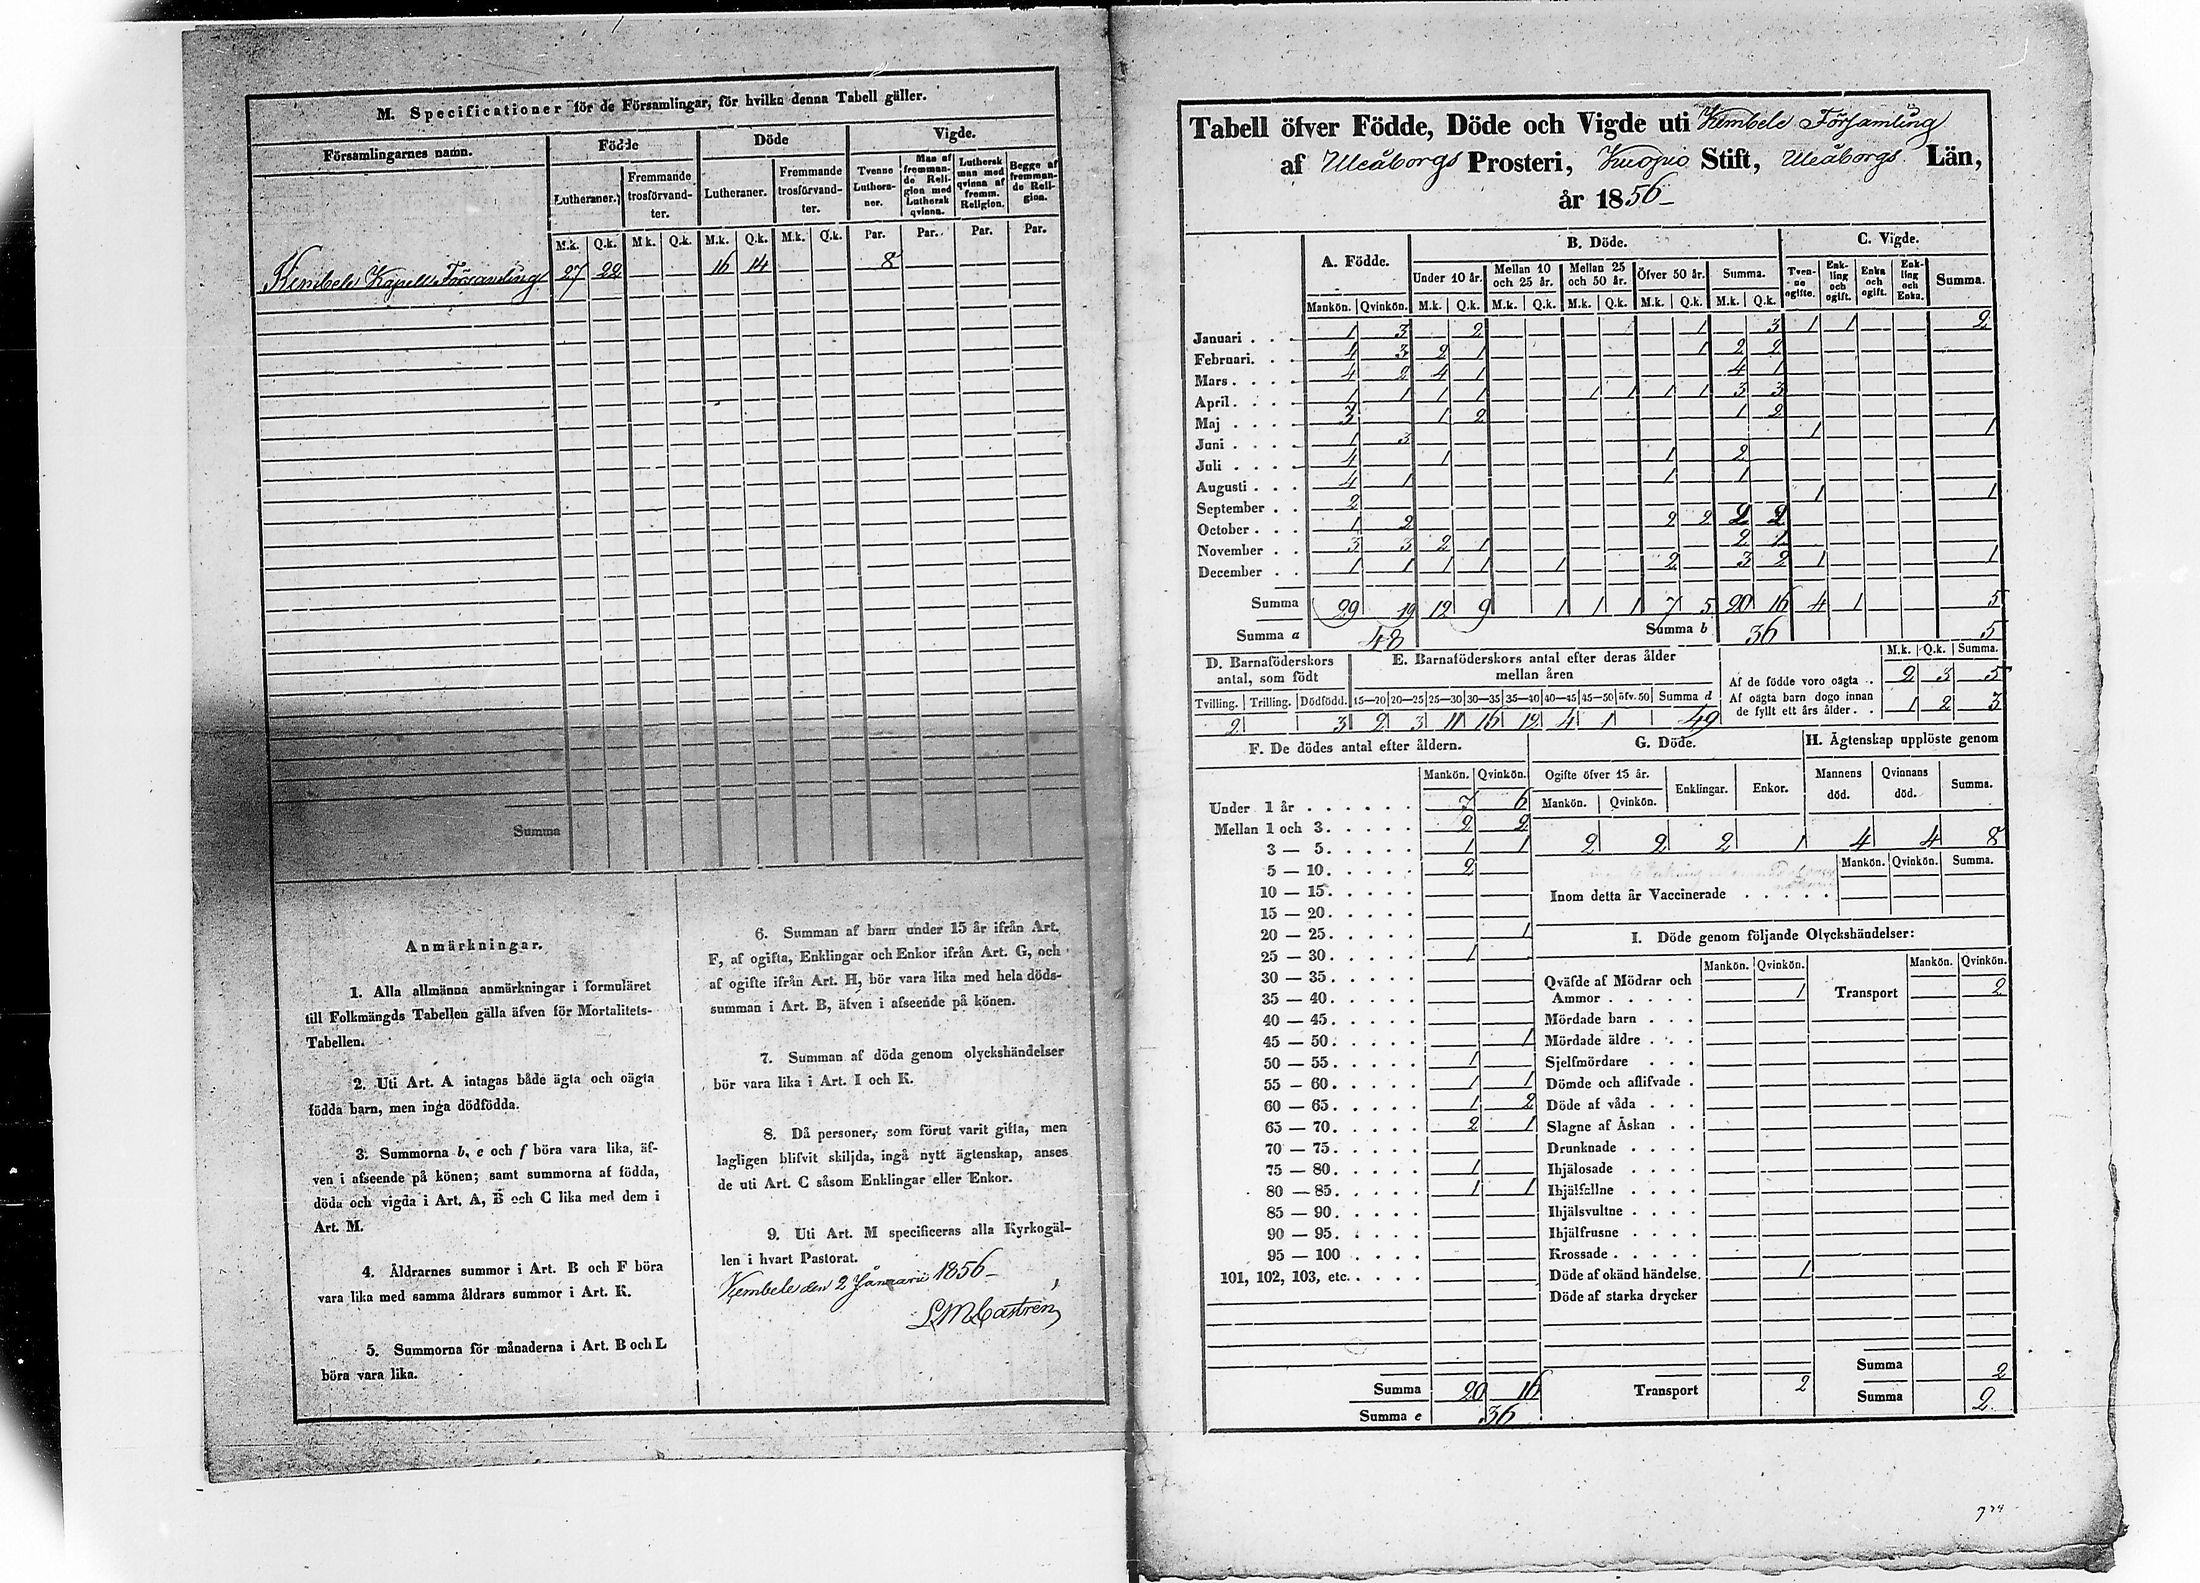 M. Specificationer för de Församlingar, för hvilka denna Tabell gäller.
Församlingarnes namn. Födde Döde Vigde.
Lutheraner. Fremmande trosförvandter. Lutheraner. Fremmande trosförvandter. Tvenne Lutheraner. Man af fremmande Religion med Luthersk qvinna. Luthersk man med qvinna af fremm. Religion. Begge af fremmande Religion.
M.k. Q.k. M.k. Q.k. M.k. Q.k. M.k. Q.k. Par. Par. Par. Par.
Kembele Kapell Församling 27 22 16 14 8
Summa
Anmärkningar.
1. Alla allmänna anmärkningar i formuläret
till Folkmängds Tabellen gälla äfven för Mortalitets-
Tabellen.
2. Uti Art. A intagas både ägta och oägta
födda barn, men inga dödfödda.
3. Summorna b, e och f böra vara lika, äf-
ven i afseende på könen; samt summorna af födda,
döda och vigda i Art. A, B och C lika med dem i
Art. M.
4. Åldrarnes summor i Art. B och F böra
vara lika med samma åldrars summor i Art. K.
5. Summorna för månaderna i Art. B och L
böra vara lika.
6. Summan af barn under 15 år ifrån Art.
F, af ogifta, Enklingar och Enkor ifrån Art. G, och
af ogifte ifrån Art. H, bör vara lika med hela döds-
summan i Art. B, äfven i afseende på könen.
7. Summan af döda genom olyckshändelser
bör vara lika i Art. I och K.
8. Då personer, som förut varit gifta, men
lagligen blifvit skiljda, ingå nytt ägtenskap, anses
de uti Art. C såsom Enklingar eller Enkor.
9. Uti Art. M specificeras alla Kyrkogäl-
len i hvart Pastorat.
Kembele den 2 Januari 1856
L M Castrén
Tabell öfver Födde, Döde och Vigde uti Kembele Församling
af Uleåborgs Prosteri, Kuopio Stift, Uleåborgs Län,
år 1856
A. Födde. B. Döde. C. Vigde.
Under 10 år. Mellan 10 och 25 år. Mellan 25 och 50 år. Öfver 50 år. Summa. Tvenne ogifte. Enkling och ogift. Enka och ogift. Enkling och Enka. Summa.
Mankön. Qvinkön. M.k. Q.k. M.k. Q.k. M.k. Q.k. M.k. Q.k. M.k. Q.k.
Januari 1 3 2 1 3 1 1 2
Februari. 4 3 2 1 1 2 2
Mars 4 2 4 1 4 1
April 1 1 1 1 1 1 1 1 3 3
Maj 3 1 2 1 2
Juni 1 3 1 1
Juli 4 1 1 2
Augusti 4 1 1 1
September 2 1 1
October 1 2 2 2 2 2
November 3 3 2 1 2 1
December 1 1 1 1 1 2 3 2 1 1
Summa 29 19 12 9 1 1 1 7 5 20 16 4 1 5
Summa a 48 Summa b 36 5
D. Barnaföderskors antal, som födt
E. Barnaföderskors antal efter deras ålder mellan åren
Tvilling. Trilling. Dödfödd. 15—20 20—25 25—30 30—35 35—40 40—45 45—50 öfv. 50 Summa d
2 3 2 3 11 16 12 4 1 49
M.k. Q.k. Summa.
Af de födde voro oägta 2 3 5
Af oägta barn dogo innan
de fyllt ett års ålder 1 2 3
F. De dödes antal efter åldern.
Mankön. Qvinkön.
Under 1 år 7 6
Mellan 1 och 3 2 2
3 — 5 1 1
5 — 10 2
10 — 15
15 — 20
20 — 25 1
25 — 30 1
30 — 35
35 — 40
40 — 45
45 — 50 1
50 — 55 1
55 — 60 1 1
60 — 65 1 2
65 — 70 2 1
70 — 75
75 — 80 1
80 — 85 1 1
85 — 90
90 — 95
95 — 100
101, 102, 103, etc.
Summa 20 16
Summa e 36
G. Döde. H. Ägtenskap upplöste genom
Ogifte öfver 15 år. Enklingar. Enkor. Mannens död. Qvinnans död. Summa.
Mankön. Qvinkön.
2 2 2 1 4 4 8
Mankön. Qvinkön. Summa.
Inom detta år Vaccinerade
I. Döde genom följande Olyckshändelser:
Mankön. Qvinkön. Mankön. Qvinkön.
Qväfde af Mödrar och
Ammor 1 Transport 2
Mördade barn
Mördade äldre
Sjelfmördare
Dömde och aflifvade
Döde af våda
Slagne af Åskan
Drunknade
Ihjälosade
Ihjälfallne
Ihjälsvultne
Ihjälfrusne
Krossade
Döde af okänd händelse 1
Döde af starka drycker
Summa 2
Transport 2 Summa 2